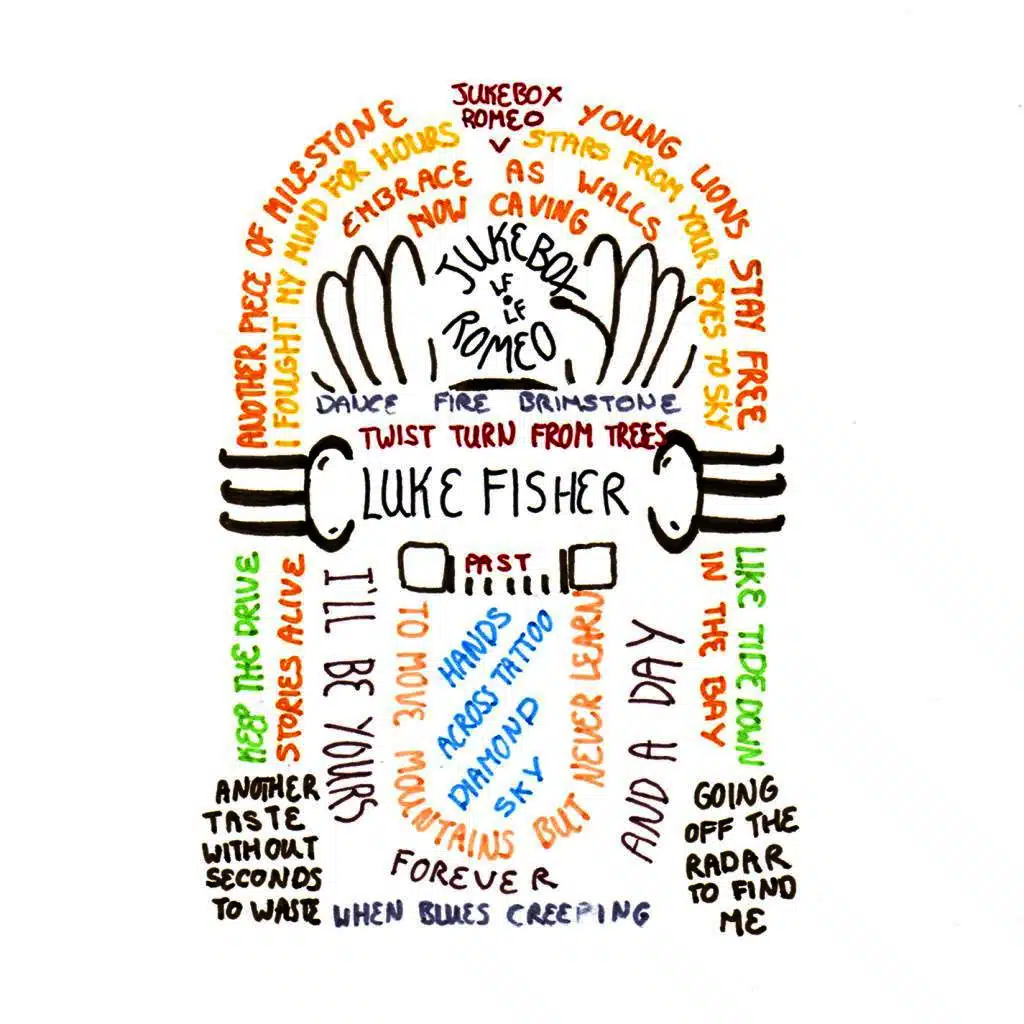 JUKEBOX
ROMEO
ANOTHER PIECE OF MILESTONE
YOUNG LIONS STAY FREE
I FOUGHT MY MIND FOR HOURS
STARS FROM YOUR EYES TO SKY
EMBRACE AS WALLS
NOW CAVING
JUKEBOX
LF
LF
ROMEO
DANCE FIRE BRIMSTONE
TWIST TURN FROM TREES
LUKE FISHER
PAST
KEEP THE DRIVE
STORIES ALIVE
I'LL BE YOURS
TO MOVE MOUNTAINS BUT NEVER LEARN
HANDS
ACROSS TATTOO
DIAMOND
SKY
AND A DAY
IN THE BAY
LIKE TIDE DOWN
FOREVER
ANOTHER
TASTE
WITHOUT
SECONDS
TO WASTE
WHEN BLUES CREEPING
GOING
OFF THE
RADAR
TO FIND
ME